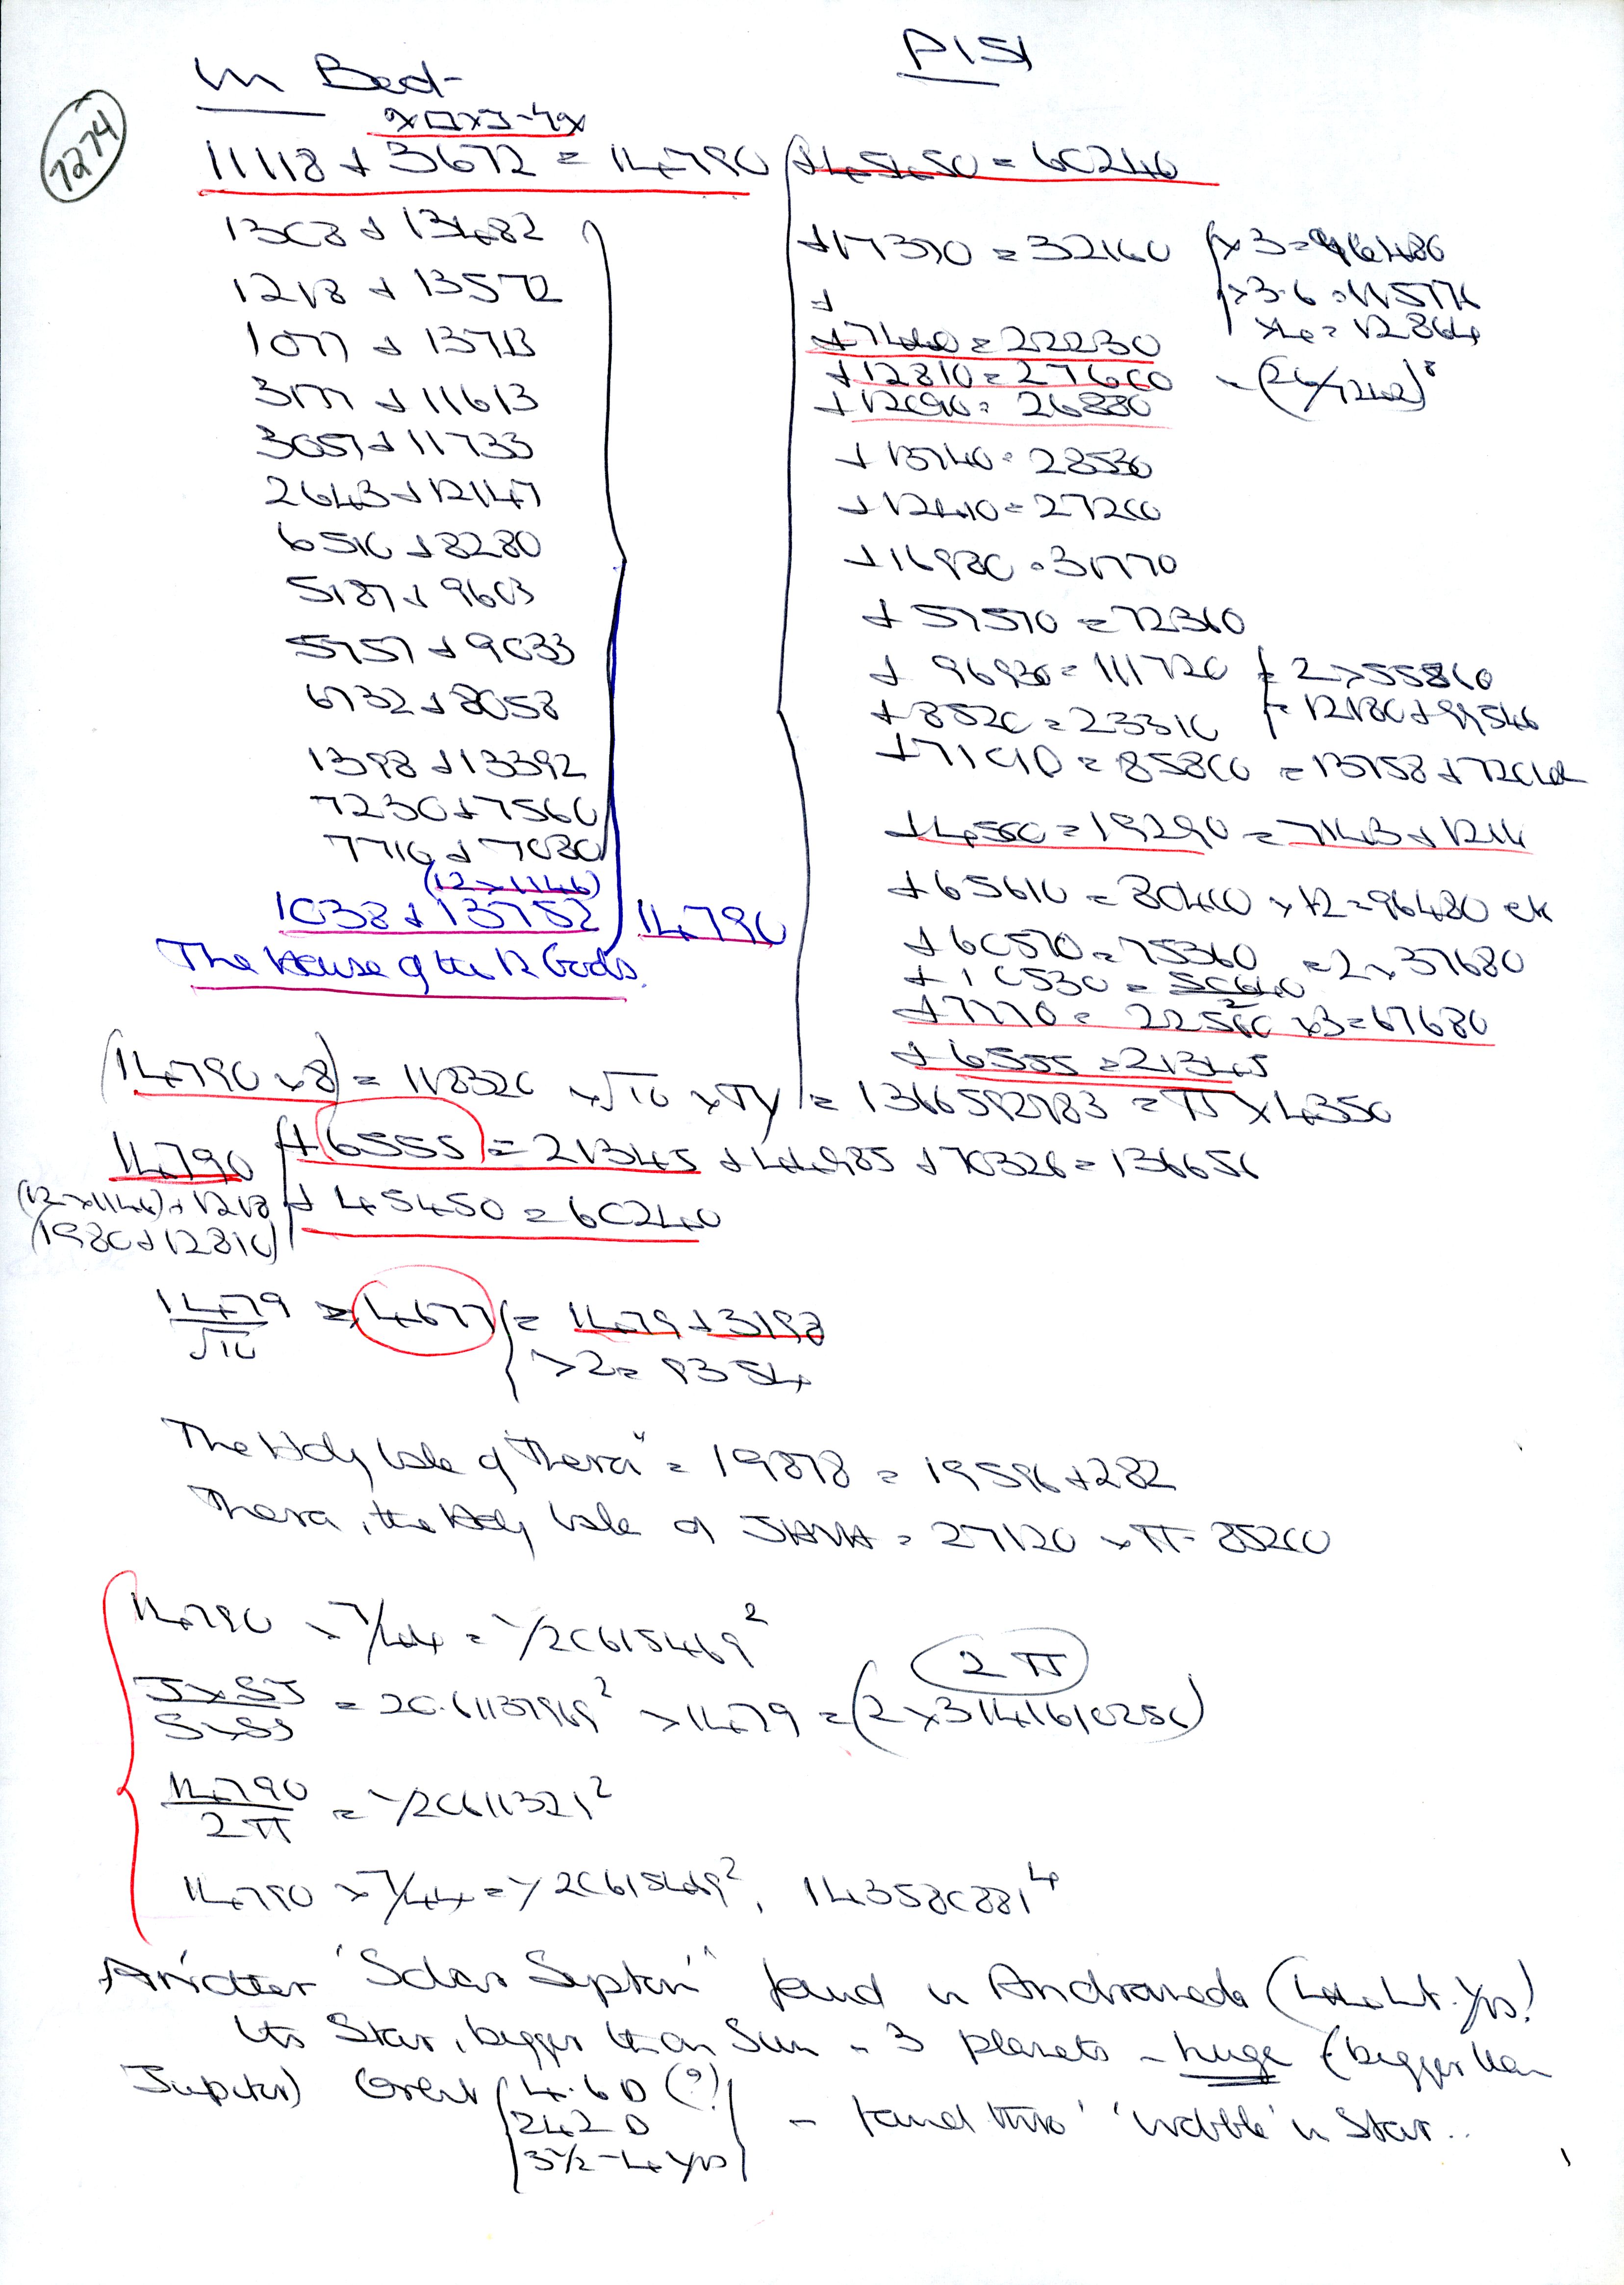 In Bed
P151
7274
11118 + 3672 = 14790 + 45450 = 60240
1308 + 13482
1218 + 13572
1077 + 13713
3177 + 11613
3057 + 11733
2643 + 12147
6510 + 8280
5187 + 9603
5757 + 9033
6732 + 8058
1398 + 13392
7230 + 7560
7710 + 7080
(12 × 1146)
1038 + 13752 14790
The House of the 12 Gods.
+ 17370 = 32160
× 3 = 96480
× 3.6 = 115776
× 4 = 12864
+
+ 7440 = 22230
+ 12810 = 27600
+ 12090 = 26880
+ 13740 = 28530
+ 12410 = 27200
+ 16980 = 31770
+ 57570 = 72360
+ 96930 = 111720 = 2 × 55860
+ 8520 = 23310 = 12180 + 99546
+ 71010 = 85800 = 13758 +
+ 4500 = 19290 = 7143 + 1214
+ 65610 = 80400 × 12 = 96480
+ 60570 = 75360 = 2 × 37680
+ 7770 = 22560 × 3 = 67680
+ 6555 = 21345
(14790 × 8) = 118320 × √10 × π = 1366592983 = π × 4350
14790 + 6555 = 21345 + 44985 + 70326 = 136656
(12 × 1146) + 1218 + 45450 = 60240
(1980 + 12810)
1479/√10 = 4677 = 1479 + 3198
× 2 = 9354
The Holy Vale of "Thera" = 19878 = 19596 + 282
Thera, the Holy Vale of JHVH = 27120 × π = 85200
14790 × 7/44 = 1/20615469²
J×SJ/S×SS = 20.61137969² × 1479 = (2 × 3141610256)
2π
14790/2π = 1/20611321²
14790 × 7/44 = 1/20615469², 143580881⁴
Another 'Solar System' found in Andromeda (44 Lt. Yrs!
Its Star, bigger than Sun - 3 planets - huge (bigger than
Jupiter) Orbit 4.6 D (?)
242 D
3½ - 4 yrs
- found thro' 'wobble' in Star..